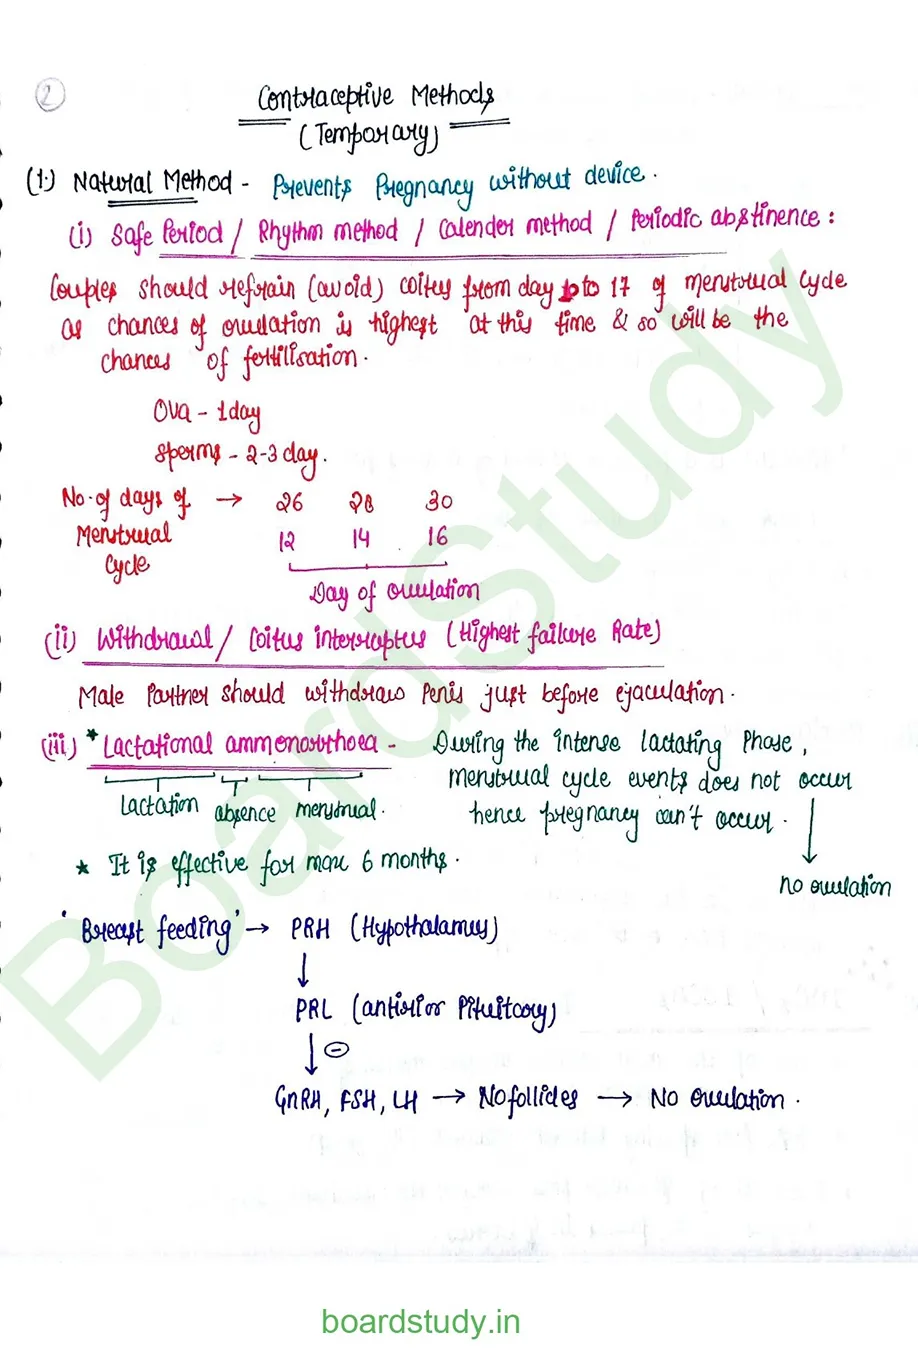 2
Contraceptive Methods
(Temporary)
(1.) Natural Method - Prevents Pregnancy without device.
(i) Safe Period / Rhythm method / Calender method / Periodic abstinence :
Couples should refrain (avoid) coitus from day to 17 of menstrual cycle
as chances of ovulation is highest at this time & so will be the
chances of fertilisation.
Ova - 1 day
Sperms - 2-3 day.
No. of days of → 26 28 30
Menstrual 12 14 16
Cycle
Day of ovulation
(ii) Withdrawal / Coitus interruptus (Highest failure Rate)
Male Partner should withdraw Penis just before ejaculation.
(iii) * Lactational ammenorrhoea - During the intense lactating Phase,
menstrual cycle events does not occur
Lactation absence menstrual. hence pregnancy can't occur.
* It is effective for max 6 months.
no ovulation
'Breast feeding' → PRH (Hypothalamus)
↓
PRL (anterior Pituitary)
↓ ⊖
GnRH, FSH, LH → No follicles → No ovulation.
BoardStudy
boardstudy.in